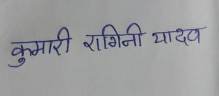 कुमारी रागिनी यादव